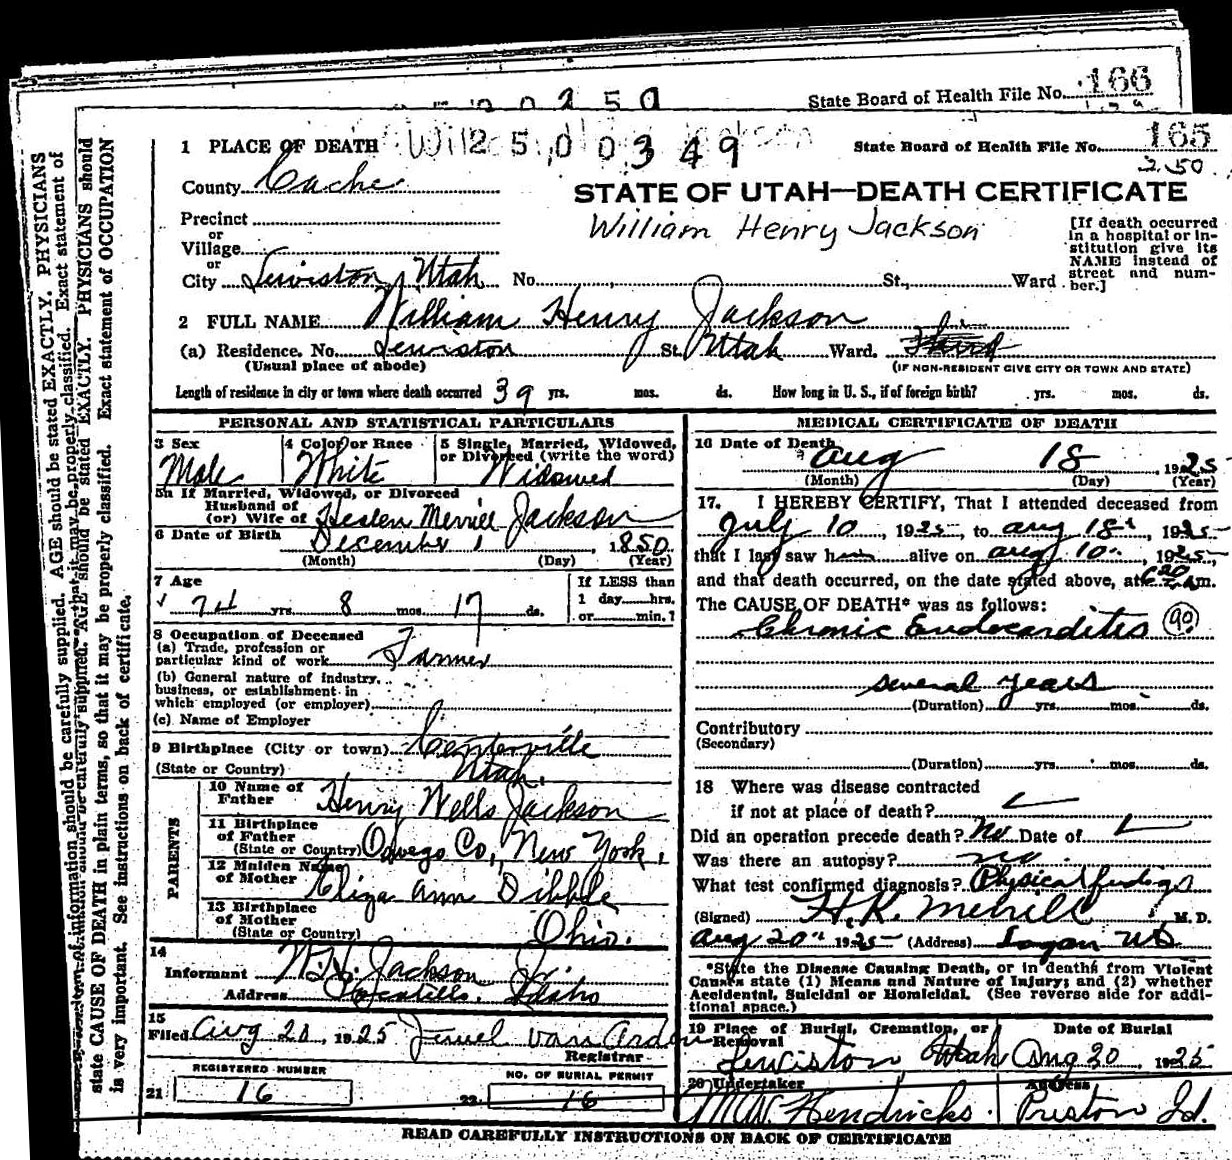 State Board of Health File No. 166
2 0 2 5 0
1 PLACE OF DEATH
2 5 0 0 3 4 9
State Board of Health File No. 165
250
County Cache
STATE OF UTAH—DEATH CERTIFICATE
William Henry Jackson
[If death occurred in a hospital or institution give its NAME instead of street and number.]
Precinct
or
Village
or
City Lewiston, Utah No. St., Ward
2 FULL NAME William Henry Jackson
(a) Residence. No. Lewiston St. Utah Ward. Third
(Usual place of abode)
(IF NON-RESIDENT GIVE CITY OR TOWN AND STATE)
Length of residence in city or town where death occurred 39 yrs. mos. ds. How long in U. S., if of foreign birth? yrs. mos. ds.
PERSONAL AND STATISTICAL PARTICULARS
3 Sex
Male
4 Color or Race
White
5 Single, Married, Widowed, or Divorced (write the word)
Widowed
5a If Married, Widowed, or Divorced
Husband of
(or) Wife of Heslen Merrill Jackson
6 Date of Birth December 1, 1850
(Month) (Day) (Year)
7 Age
74 yrs. 8 mos. 17 ds.
If LESS than
1 day hrs.
or min.?
8 Occupation of Deceased
(a) Trade, profession or
particular kind of work Farmer
(b) General nature of industry,
business, or establishment in
which employed (or employer)
(c) Name of Employer
9 Birthplace (City or town) Centerville
(State or Country) Utah.
PARENTS
10 Name of
Father Henry Wells Jackson
11 Birthplace
of Father
(State or Country) Oswego Co, New York.
12 Maiden Name
of Mother Eliza Ann Dibble
13 Birthplace
of Mother
(State or Country) Ohio.
14
Informant W.H. Jackson Jr.
Address Pocatello, Idaho
15
Filed Aug 20, 1925 Jewel Van Orden
Registrar
REGISTERED NUMBER
21 16
NO. OF BURIAL PERMIT
22 16
MEDICAL CERTIFICATE OF DEATH
16 Date of Death
Aug 18, 1925
(Month) (Day) (Year)
17. I HEREBY CERTIFY, That I attended deceased from
July 10, 1925, to Aug 18, 1925
that I last saw him alive on Aug 10, 1925,
and that death occurred, on the date stated above, at 6 20 a m.
The CAUSE OF DEATH* was as follows:
Chronic Endocarditis 90
several years
(Duration) yrs. mos. ds.
Contributory
(Secondary)
(Duration) yrs. mos. ds.
18 Where was disease contracted
if not at place of death?
Did an operation precede death? No Date of
Was there an autopsy? no
What test confirmed diagnosis? Physical findings
(Signed) H.K. Merrill M. D.
Aug 20, 1925 (Address) Logan Ut
*State the Disease Causing Death, or in deaths from Violent
Causes state (1) Means and Nature of Injury; and (2) whether
Accidental, Suicidal or Homicidal. (See reverse side for additional space.)
19 Place of Burial, Cremation, or
Removal
Date of Burial
Lewiston Utah Aug 20 1925
20 Undertaker
Address
M.W. Hendricks. Preston Id.
READ CAREFULLY INSTRUCTIONS ON BACK OF CERTIFICATE
information should be carefully supplied. AGE should be stated EXACTLY. PHYSICIANS should
state CAUSE OF DEATH in plain terms, so that it may be properly classified. Exact statement of OCCUPATION
is very important. See instructions on back of certificate.